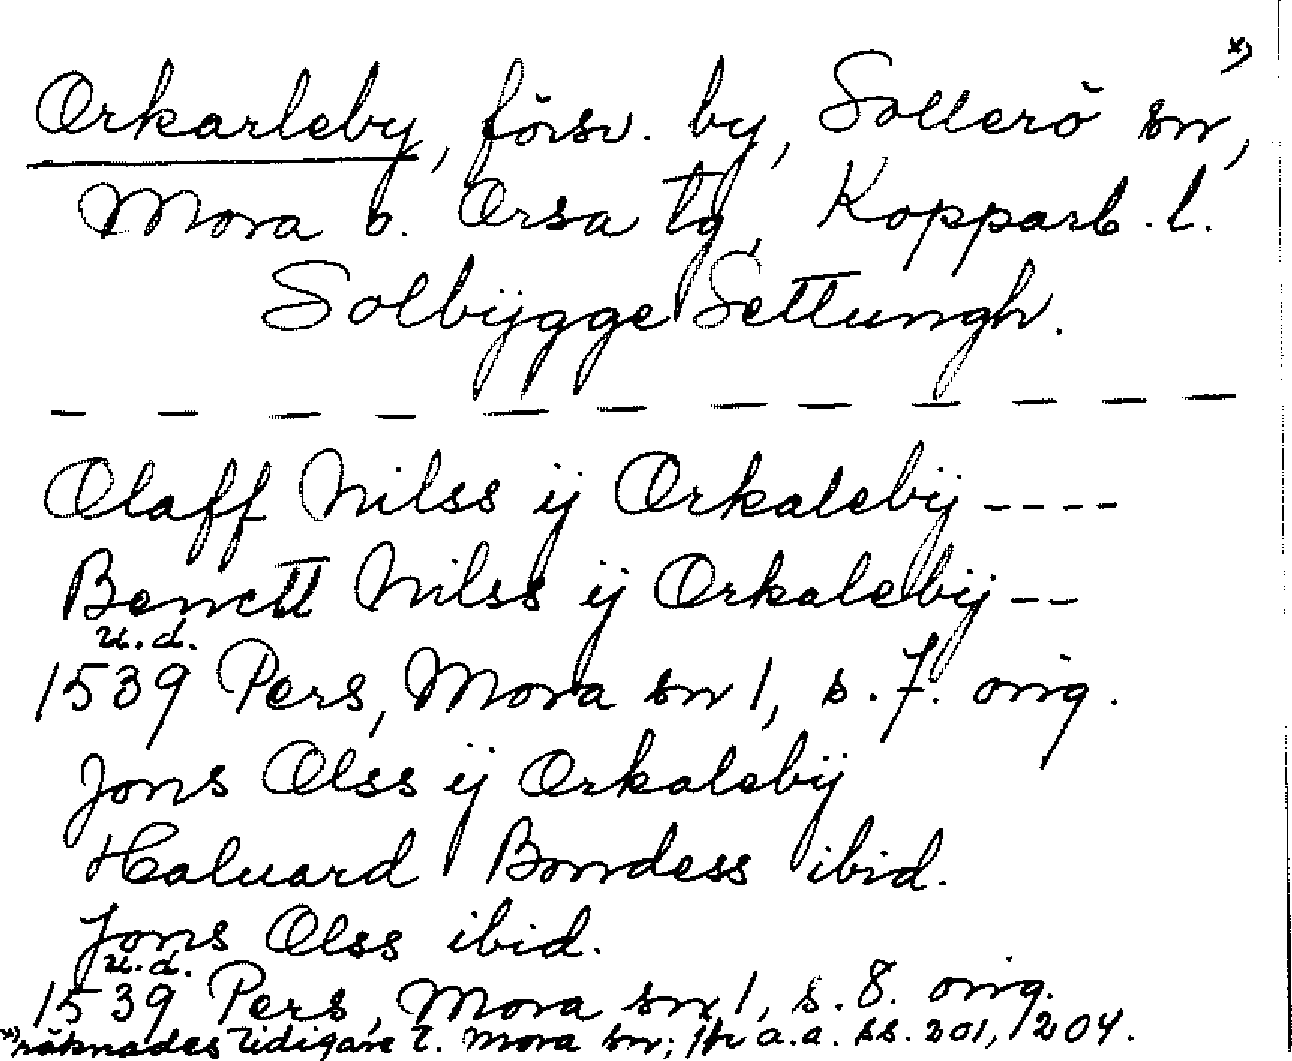 x)
Orkarleby, försv. by, Sollerö sn,
Mora o. Orsa tg, Kopparb. l.
Solbÿgge Settungh.
— — — — — — — — — — —
Olaff Nilss ij Orkalebij ----
Benctt Nilss ij Orkalebij --
u.d.
1539 Pers, Mora sn 1, s. 7. orig.
Jons Olss ij Orkalebij
Haluard Bondess ibid.
Jons Olss ibid.
u.d.
1539 Pers, Mora sn 1, s. 8. orig.
x) räknades tidigare t. Mora sn; jfr a.a. ss. 201, 204.